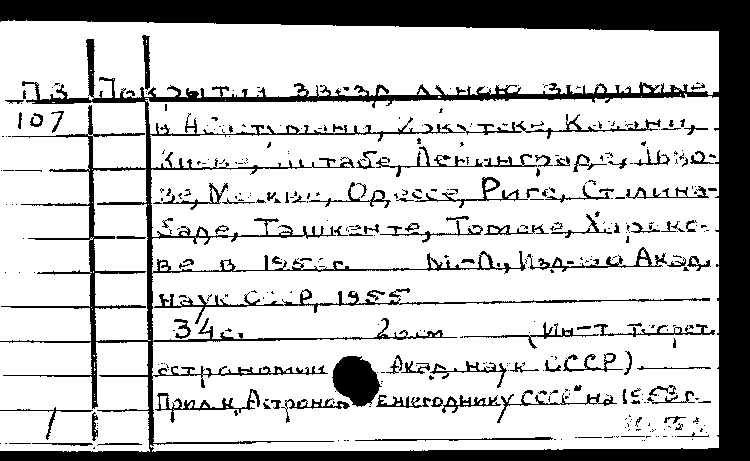 ПЗ Покрытия звезд луною видимые
107 в Абастумани, Иркутске, Казани,
Киеве, Китабе, Ленинграде, Льво-
ве, Москве, Одессе, Риге, Сталина-
баде, Ташкенте, Томске, Харько-
ве в г. М.-Л., Изд-во Акад.
наук СССР, 1955
34 с. 20 см (Ин-т теорет.
астрономии Акад. наук СССР).
Прил. к „Астроном. ежегоднику СССР" на г.